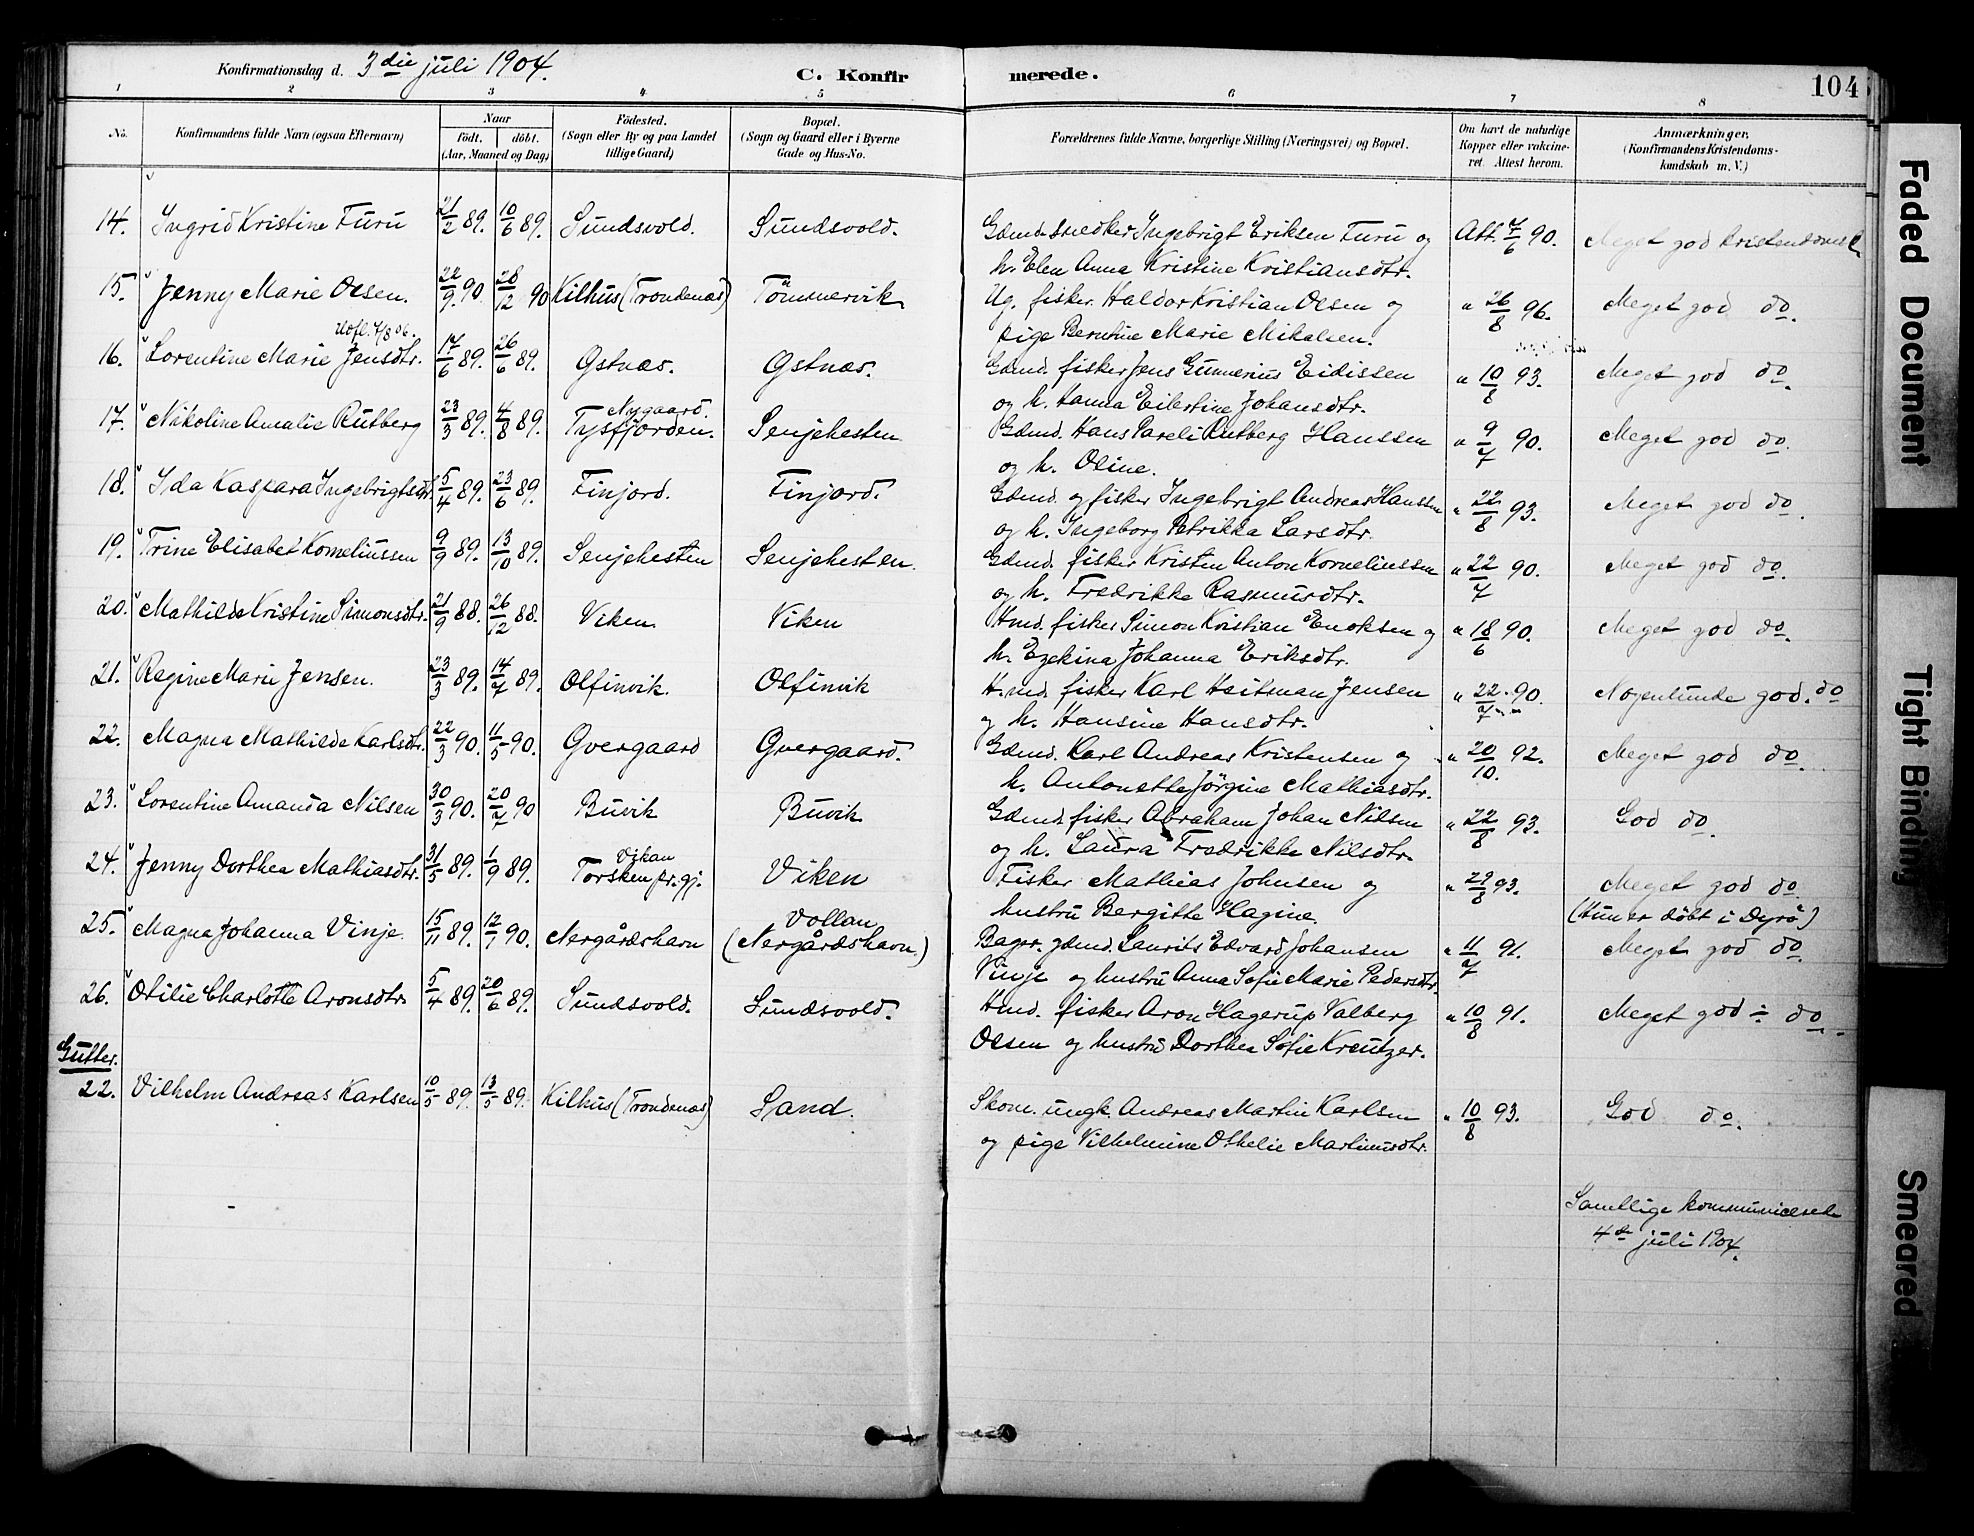 Konfirmationsdag d. 3die juli 1904.
C. Konfirmerede.
104
1 2 3 4 5 6 7 8
No. Konfirmandens fulde Navn (ogsaa Efternavn) Naar født. døbt. (Aar, Maaned og Dag) Fødested. (Sogn eller By og paa Landet tillige Gaard) Bopæl. (Sogn og Gaard eller i Byerne Gade og Hus-No. Forældrenes fulde Navne, borgerlige Stilling (Næringsvei) og Bopæl. Om havt de naturlige Kopper eller vakcineret. Attest herom. Anmærkninger. (Konfirmandens Kristendomskundskab m. V.)
14. Ingrid Kristine Furu 21/2 89. 10/6 89. Sundsvold. Sundsvold. Gdmd. snedker Ingebrigt Eriksen Furu og Att. 7/6 90. Meget god kristendomsk
h. Elen Anna Kristine Kristiansdtr.
15. Jenny Marie Olsen. 22/9 90 28/12 90 Kilhus (Trondenæs) Tömmervik Ug. fisker Haldor Kristian Olsen og " 26/8 96. Meget god do.
pige Berntine Marie Mikalsen.
Udfl. 7/8 06.
16. Lorentine Marie Jensdtr. 17/6 89. 26/6 89. Østnæs. Østnæs. Gdmd. fisker Jens Gunnerius Eidissen " 10/8 93. Meget god do.
og h. Hanna Eilertine Johansdtr.
17. Nikoline Amalie Rutberg 23/3 89. 4/8 89. Nygaard. Tysfjorden. Senjehesten Gdmd. Hans Pareli Rutberg Hanssen " 9/7 90. Meget god do.
og h. Oline.
18. Ida Kaspara Ingebrigtsdtr. 5/4 89. 23/6 89. Finjord. Finjord. Gdmd. og fisker Ingebrigt Andreas Hanssen " 22/8 93. Meget god do.
og h. Ingeborg Petrikka Larsdtr.
19. Trine Elisabet Korneliussen 9/9 89. 13/10 89. Senjehesten Senjehesten. Gdmd. fisker Kristen Anton Korneliussen " 22/7 90. Meget god do.
og h. Fredrikke Rasmusdtr.
20. Mathilde Kristine Simonsdtr. 21/9 88. 26/12 88. Viken. Viken Hmd. fisker Simon Kristian Enoksen og " 18/6 90. Meget god do.
h. Ezekina Johanna Eriksdtr.
21. Regine Marie Jensen. 23/3 89. 14/7 89. Olfinvik. Olfinvik Hmd. fisker Karl Heitman Jensen " 22/7 90. Nogenlunde god. do
og h. Hansine Hansdtr.
22. Magna Mathilde Karlsdtr. 22/3 90. 11/5 90. Øvergaard Øvergaard. Gdmd. Karl Andreas Kristensen og " 20/10. 92. Meget god do.
h. Antonette Jörgine Mathiasdtr.
23. Lorentine Amanda Nilsen 30/3 90. 20/7 90 Buvik Buvik Gdmd. fisker Abraham Johan Nilsen " 22/8 93. God do.
og h. Laura Fredrikke Nilsdtr.
24. Jenny Dorthea Mathiasdtr. 31/5 89. 1/9 89. Vikan Torsken pr.gj. Viken Fisker Mathias Johnsen og " 29/8 93. Meget god do
hustru Bergitte Hagine. (Hun er döbt i Dyrö)
25. Magna Johanna Vinje. 15/11 89. 12/1 90. Nergårdshavn Vollan (Nergårdshavn.) Bager. gdmd. Laurits Edvard Johansen " 11/7 91. Meget god do.
Vinje og hustru Anna Sofie Marie Pedersdtr.
26. Otilie Charlotte Aronsdtr. 5/4 89. 20/6 89. Sundsvold. Sundsvold. Hmd. fisker Aron Hagerup Valberg " 10/8 91. Meget god ÷ do.
Olsen og hustru Dorthea Sofie Kreutzer.
Gutter.
22. Vilhelm Andreas Karlsen 10/5 89. 13/5 89. Kilhus (Trondenæs) Sand. Skom. ungk. Andreas Martin Karlsen " 10/8 93. God do.
og pige Vilhelmine Othelie Martinusdtr.
Samtlige kommunicerede
4de juli 1904.
Faded Document
Tight Binding
Smeared